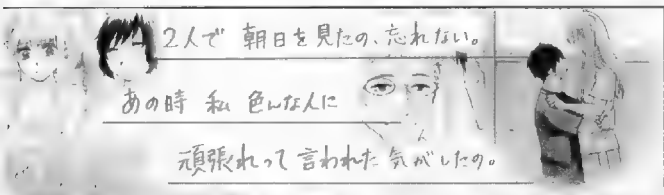 2人で 朝日を見たの、忘れない。
あの時 私 色んな人に
頑張れって 言われた 気がしたの。